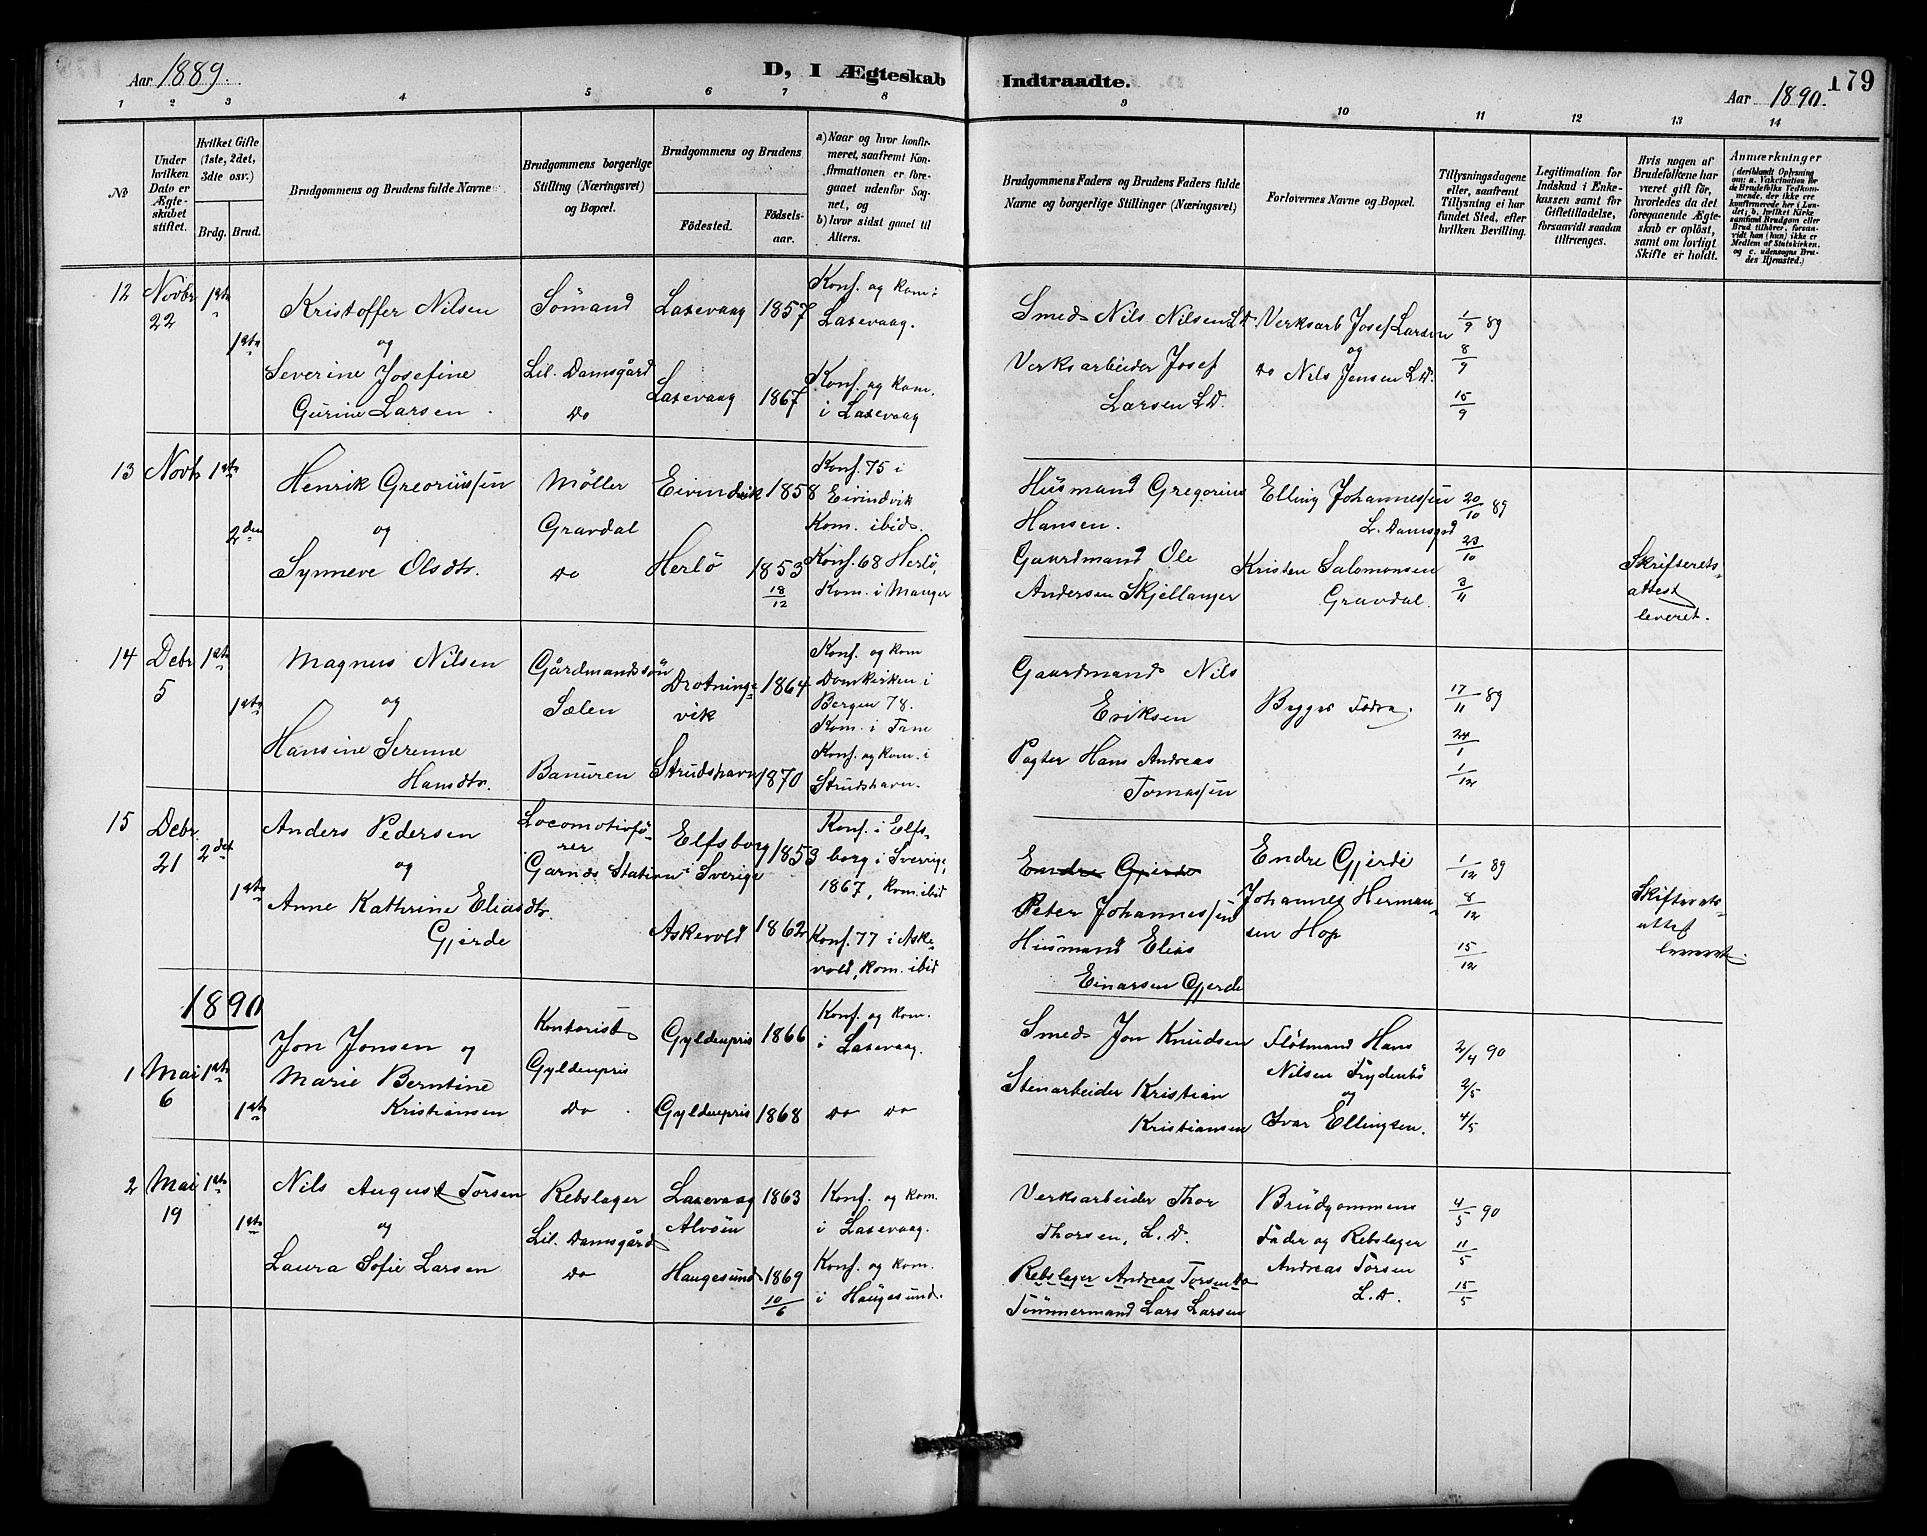 Aar 1889.
D, I Ægteskab
Indtraadte.
Aar 1890.
179
1 2 3 4 5 6 7 8 9 10 11 12 13 14
No
Under hvilken Dato er Ægteskabet stiftet.
Hvilket Gifte (1ste, 2det, 3die osv.)
Brdg. Brud.
Brudgommens og Brudens fulde Navne
Brudgommens borgerlige Stilling (Næringsvei) og Bopæl.
Brudgommens og Brudens
Fødested.
Fødselsaar.
a) Naar og hvor konfirmeret, saafremt Konfirmationen er foregaaet udenfor Sognet, og
b) hvor sidst gaaet til Alters.
Brudgommens Faders og Brudens Faders fulde Navne og borgerlige Stillinger (Næringsvei)
Forlovernes Navne og Bopæl.
Tillysningsdagene eller, saafremt Tillysning ei har fundet Sted, efter hvilken Bevilling.
Legitimation for Indskud i Enkekassen samt for Giftetilladelse, forsaavidt saadan tiltrænges.
Hvis nogen af Brudefolkene har været gift før, hvorledes da det foregaaende Ægteskab er opløst, samt om lovligt Skifte er holdt.
Anmærkninger
(deriblandt Oplysning om: a. Vakcination for de Brudefolks Vedkommende, der ikke ere konfirmerede her i Landet; b. hvilket Kirkesamfund Brudgom eller Brud tilhører, forsaavidt han (hun) ikke er Medlem af Statskirken, og c. udensogns Brudes Hjemsted.)
12 Novbr 22 1ste 1ste
Kristoffer Nilsen
og
Severine Josefine
Gurine Larsen.
Sömand
Lil. Damsgård
Do
Laxevaag 1857
Laxevaag 1867
Konf. og kom i
Laxevaag.
Konf. og kom.
i Laxevaag
Smed Nils Nilsen LD.
Verksarbeider Josef
Larsen LD.
Verksarb Josef Larsen
og
do Nils Jensen LD.
1/9 89
8/9
15/9
13 Novbr 1ste 2den
Henrik Greoriussen
og
Synneve Olsdtr.
Möller
Gravdal
Do
Eivindvik 1858
Herlö 1853
18/12
Konf. 75 i
Eivindvik
Kom. ibid.
Konf. 68 Herlö,
Kom. i Manger
Husmand Gregorius
Hansen.
Gaardmand Ole
Andersen Skjellanger
Elling Johannessen
L. Damsgrd
Kristen Salomonsen
Gravdal.
20/10 89
23/10
3/11
Skrifterets-
attest
leveret.
14 Debr 5 1ste 1ste
Magnus Nilsen
og
Hansine Serenne
Hansdtr.
Gårdmandssön
Sælen
Banuren
Drotning-
vik 1864
Strudshavn 1870
Konf. og kom
Domkirken i
Bergen 78.
Kom. i Fane
Konf. og kom. i
Strudshavn.
Gaardmand Nils
Eriksen
Pagter Hans Andreas
Tomassen
Begges Fædre.
17/11 89
24/1
1/12
15 Debr. 21 2det 1ste
Anders Pedersen
og
Anne Kathrine Eliasdtr.
Gjerde
Locomotivfö-
rer
Garnæs Station
Elfsborg 1853
i Sverige
Askevold 1862
Konf. i Elfs-
borg i Sverrige,
1867, kom. ibid
Konf. 77 i Aske-
vold, kom. ibid
Endre Gjerde
Peter Johannessen
Husmand Elias
Einarsen Gjerde
Endre Gjerde
Johannes Herman-
sen Hop
1/12 89
8/12
15/12
Skifterets-
attest
leveret.
1890
1 Mai 6 1ste 1ste
Jon Jonsen og
Marie Berntine
Kristiansen
Kontorist
Gyldenpris
Do
Gyldenpris 1866
Gyldenpris 1868
Konf. og kom.
i Laxevaag.
do do
Smed Jon Knudsen
Stenarbeider Kristian
Kristiansen
Flötmand Hans
Nilsen Frydenbö
og
Ivar Ellingsen.
2/4 90
2/5
4/5
2 Mai 19 1ste 1ste
Nils August Torsen
og
Laura Sofie Larsen
Rebslager
Lil. Damsgård
do
Laxevaag 1863
Alvöen
Haugesund 1869
10/6
Konf. og kom.
i Laxevaag.
Konf. og kom.
i Haugesund.
Verksarbeider Thor
Thorsen, L.D.
Rebslager Andreas Torsen do
Tömmermand Lars Larsen
Brudgommens
Fader og Rebslager
Andreas Torsen
L.D.
4/5 90
11/5
15/5